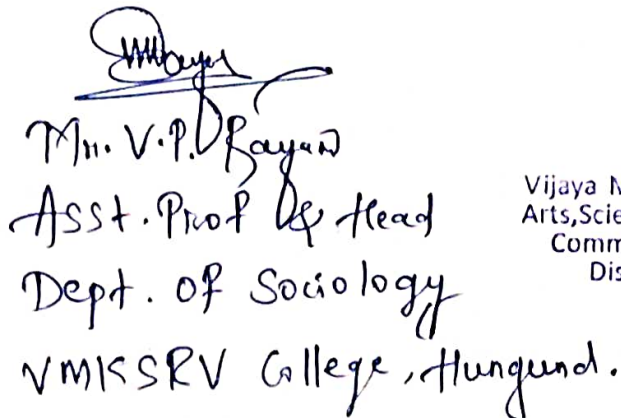 Mr. V.P. Rayan
Asst. Prof & Head
Dept. of Sociology
VMKSRV College, Hungund.
Vijaya
Arts, Scie
Comm
Dis